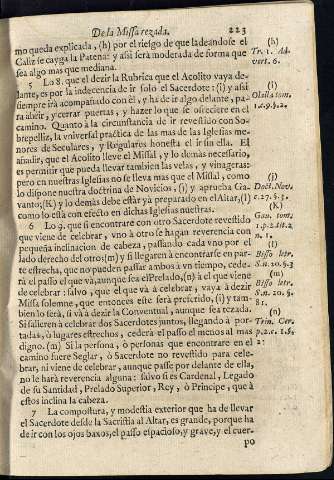 De la Missa rezada. 223
mo queda explicada, (h) por el riesgo de que ladeandose el
Caliz se cayga la Patena: y assi será moderada de forma que
sea algo mas que mediana.
5 Lo 8. que el dezir la Rubrica que el Acolito vaya de-
lante, es por la indecencia de ir solo el Sacerdote: (i) y assi
siempre irá acompañado con él, y ha de ir algo delante, pa-
ra abrir, y cerrar puertas, y hazer lo que se ofreciere en el
camino. Quanto à la circunstancia de ir revestido con So-
brepelliz, la universal practica de las mas de las Iglesias me-
nores de Seculares, y Regulares honesta el ir sin ella. El
añadir, que el Acolito lleve el Missal, y lo demàs necessario,
es permitir que pueda llevar tambien las velas, y vinageras:
pero en nuestras Iglesias no se lleva mas que el Missal, como
lo dispone nuestra doctrina de Novicios, (j) y aprueba Ga-
vanto; (K) y lo demàs debe estàr yà preparado en el Altar, (l)
como lo està con efecto en dichas Iglesias nuestras.
6 Lo 9. que si encontrare con otro Sacerdote revestido
que viene de celebrar, vno à otro se hagan reverencia con
pequeña inclinacion de cabeza, passando cada vno por el
lado derecho del otro; (m) y si llegaren à encontrarse en par-
te estrecha, que no pueden passar ambos à vn tiempo, cede-
rà el passo el que và, aunque sea el Prelado, (n) à el que viene
de celebrar: salvo, que el que và à celebrar, vaya à dezir
Missa solemne, que entonces este serà preferido, (i) y tam-
bien lo serà, si và à dezir la Conventual, aunque sea rezada.
Si salieren à celebrar dos Sacerdotes juntos, llegando à por-
tadas, ò lugares estrechos, cederà el passo el menos al mas
digno. (m) Si la persona, ò personas que encontrare en el
camino fuere Seglar, ò Sacerdote no revestido para cele-
brar, ni viene de celebrar, aunque passe por delante de ella,
no le harà reverencia alguna: salvo si es Cardenal, Legado
de su Santidad, Prelado Superior, Rey, ò Principe, que à
estos inclina la cabeza.
7 La compostura, y modestia exterior que ha de llevar
el Sacerdote desde la Sacristia al Altar, es grande, porque ha
de ir con los ojos baxos, el passo espacioso, y grave, y el cuer-
po
(h)
Tr. 1. Ad-
vert. 6.
(i)
(j)
Doct. Nov.
(K)
(l)
(m)
(n)